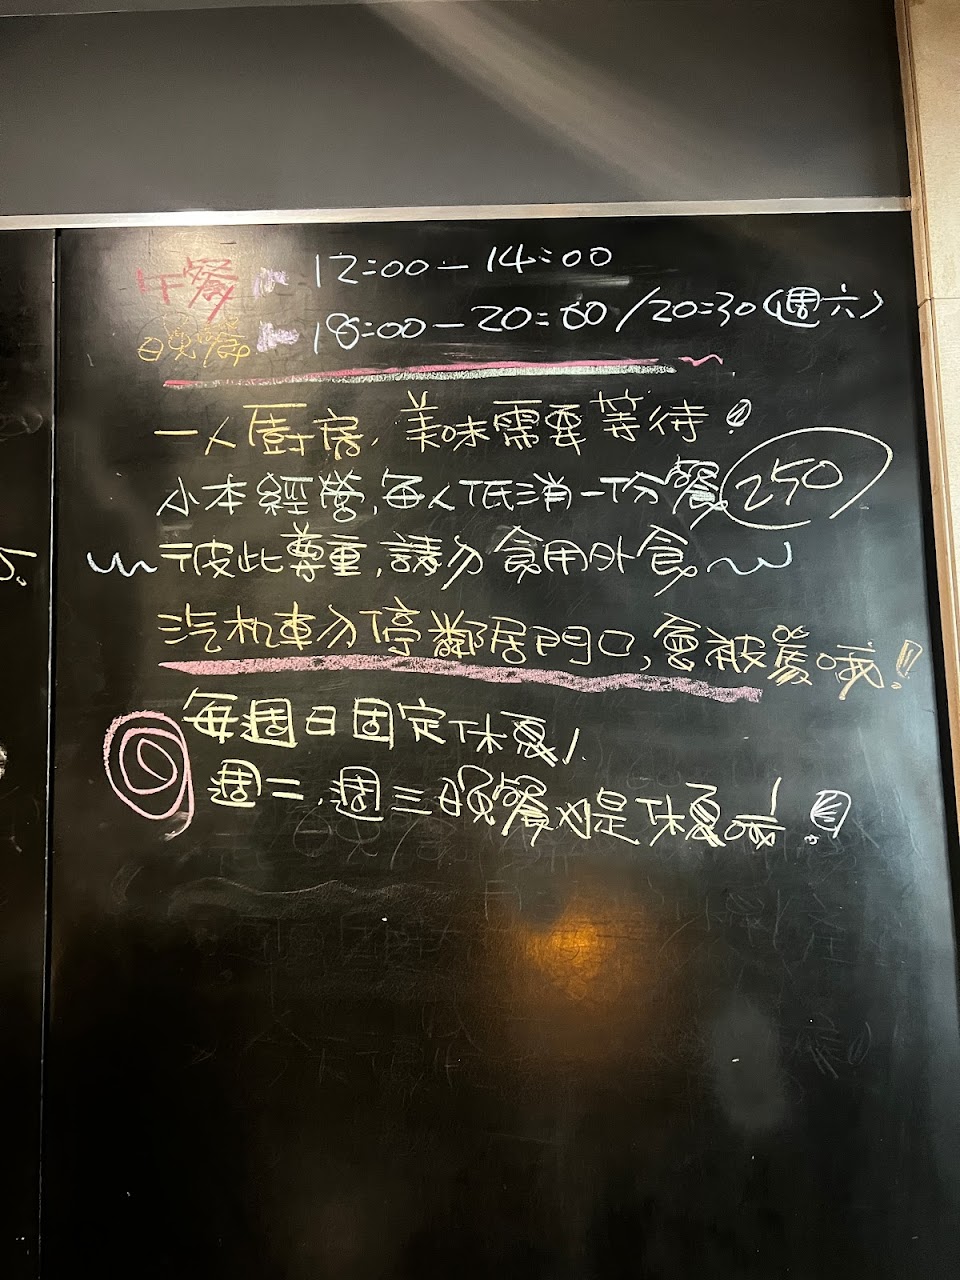 午餐 12:00-14:00
晚餐 18:00-20:00/20:30(週六)
一人廚房,美味需要等待!
小本經營,每人低消一份餐 250
彼此尊重,請勿食用外食
汽机車勿停鄰居門口,會被罵哦!!
每週日固定休憂!
週二,週三晚餐也是休憂哦!